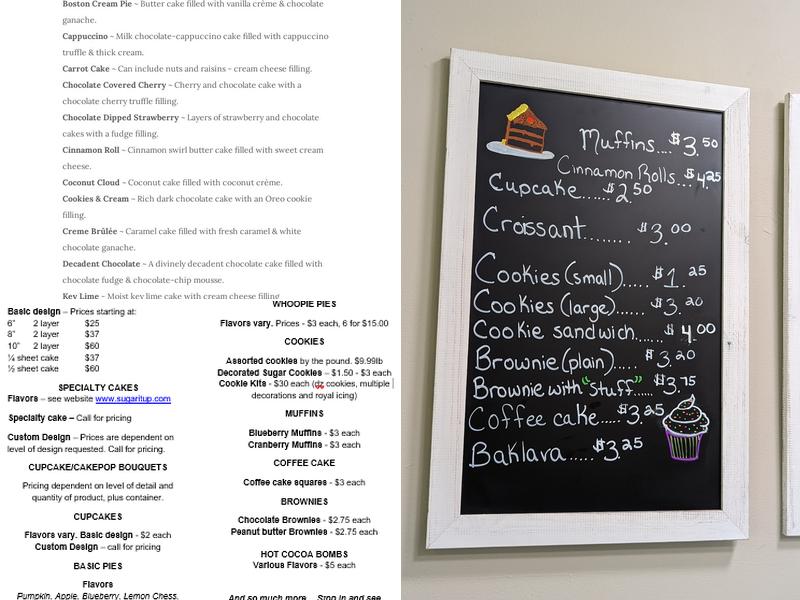 Boston Cream Pie ~ Butter cake filled with vanilla crème & chocolate
ganache.
Cappuccino ~ Milk chocolate-cappuccino cake filled with cappuccino
truffle & thick cream.
Carrot Cake ~ Can include nuts and raisins ~ cream cheese filling.
Chocolate Covered Cherry ~ Cherry and chocolate cake with a
chocolate cherry truffle filling.
Chocolate Dipped Strawberry ~ Layers of strawberry and chocolate
cakes with a fudge filling.
Cinnamon Roll ~ Cinnamon swirl butter cake filled with sweet cream
cheese.
Coconut Cloud ~ Coconut cake filled with coconut crème.
Cookies & Cream ~ Rich dark chocolate cake with an Oreo cookie
filling.
Creme Brûlée ~ Caramel cake filled with fresh caramel & white
chocolate ganache.
Decadent Chocolate ~ A divinely decadent chocolate cake filled with
chocolate fudge & chocolate-chip mousse.
Key Lime ~ Moist key lime cake with cream cheese filling
Basic design – Prices starting at:
6" 2 layer $25
8" 2 layer $37
10" 2 layer $60
¼ sheet cake $37
½ sheet cake $60
SPECIALTY CAKES
Flavors – see website www.sugaritup.com
Specialty cake – Call for pricing
Custom Design – Prices are dependent on
level of design requested. Call for pricing.
CUPCAKE/CAKEPOP BOUQUETS
Pricing dependent on level of detail and
quantity of product, plus container.
CUPCAKES
Flavors vary. Basic design - $2 each
Custom Design – call for pricing
BASIC PIES
Flavors
Pumpkin, Apple, Blueberry, Lemon Chess,
WHOOPIE PIES
Flavors vary. Prices - $3 each, 6 for $15.00
COOKIES
Assorted cookies by the pound. $9.99lb
Decorated Sugar Cookies – $1.50 - $3 each
Cookie Kits - $30 each (dz cookies, multiple
decorations and royal icing)
MUFFINS
Blueberry Muffins - $3 each
Cranberry Muffins - $3 each
COFFEE CAKE
Coffee cake squares - $3 each
BROWNIES
Chocolate Brownies - $2.75 each
Peanut butter Brownies - $2.75 each
HOT COCOA BOMBS
Various Flavors - $5 each
And so much more... Stop in and see
Muffins.... $3.50
Cinnamon Rolls... $4.25
Cupcake...... $2.50
Croissant........ $3.00
Cookies (small)..... $1.25
Cookies (large)..... $3.20
Cookie sandwich..... $4.00
Brownie (plain)..... $3.20
Brownie with "stuff"..... $3.75
Coffee cake..... $3.25
Baklava..... $3.25